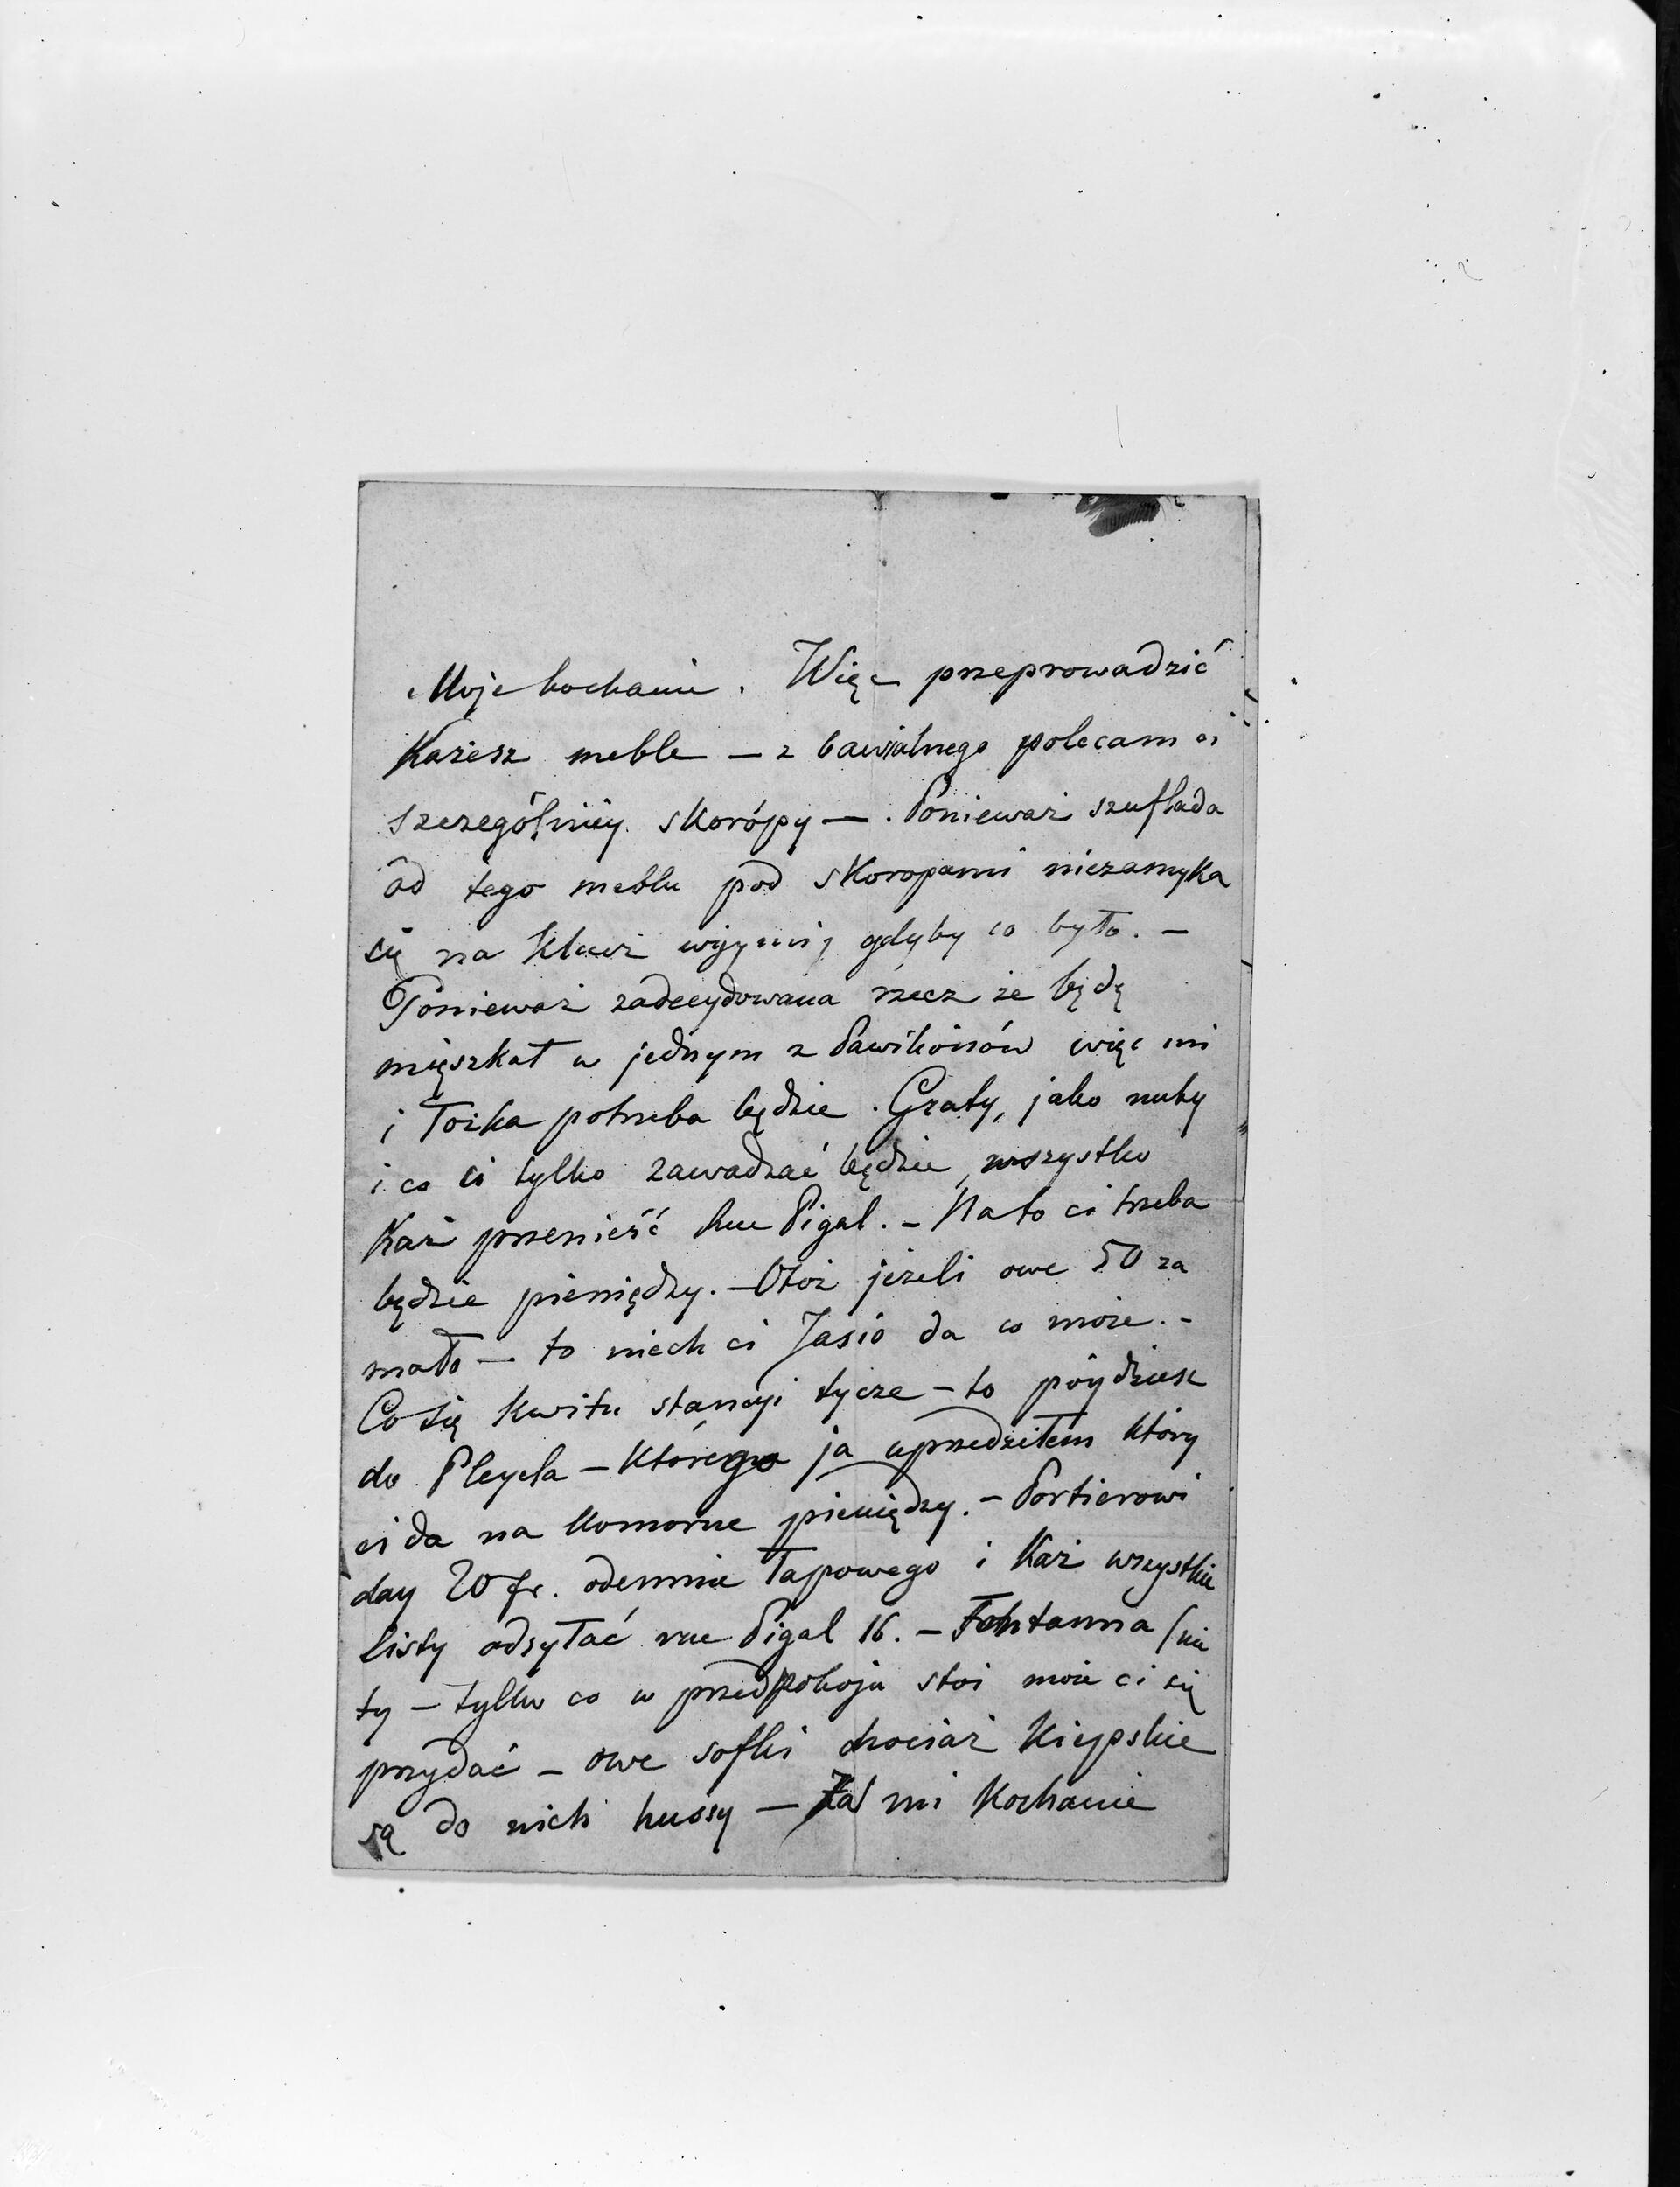 Moje kochanie. Więc przeprowadzić
Każesz meble — z bawialnego polecam ci
szczególniéy skorópy —. Ponieważ szuflada
od tego meblu pod skoropami niezamyka
się na klucz wyjmij gdyby co było. —
Ponieważ zadecydowana rzecz że będę
mięszkał w jednym z Pawilonów więc mi
i łożka potrzeba będzie. Graty, jako nuty
i co ci tylko zawadzać będzie, wszystko
Każ przenieść rue Pigal. — Na to ci trzeba
będzie pieniędzy. — Otoż jeżeli owe 50 za
mało — to niech ci Jasio da co może. —
Co się kwitu stancyi tycze — to póydziesz
do Pleyela — którego ja uprzedziłem który
ci da na komorne pieniędzy. — Portierowi
day 20 fr. odemnie Łapowego i Każ wszystkie
listy odsyłać rue Pigal 16. — Fontanna (nie
ty — tylko co w przedpokoju stoi może ci się
przydać — owe sofki chociaż kiepskie
są do nich hussy — Żal mi Kochanie